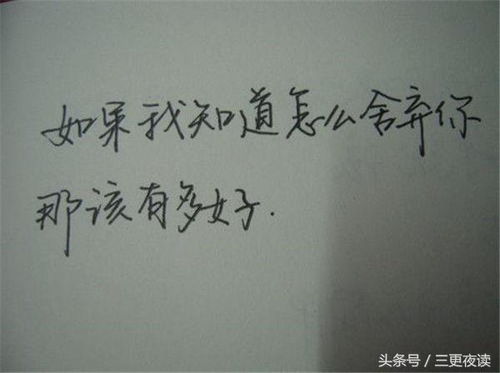 如果我知道怎么舍弃你
那该有多好.
头条号/三更夜读